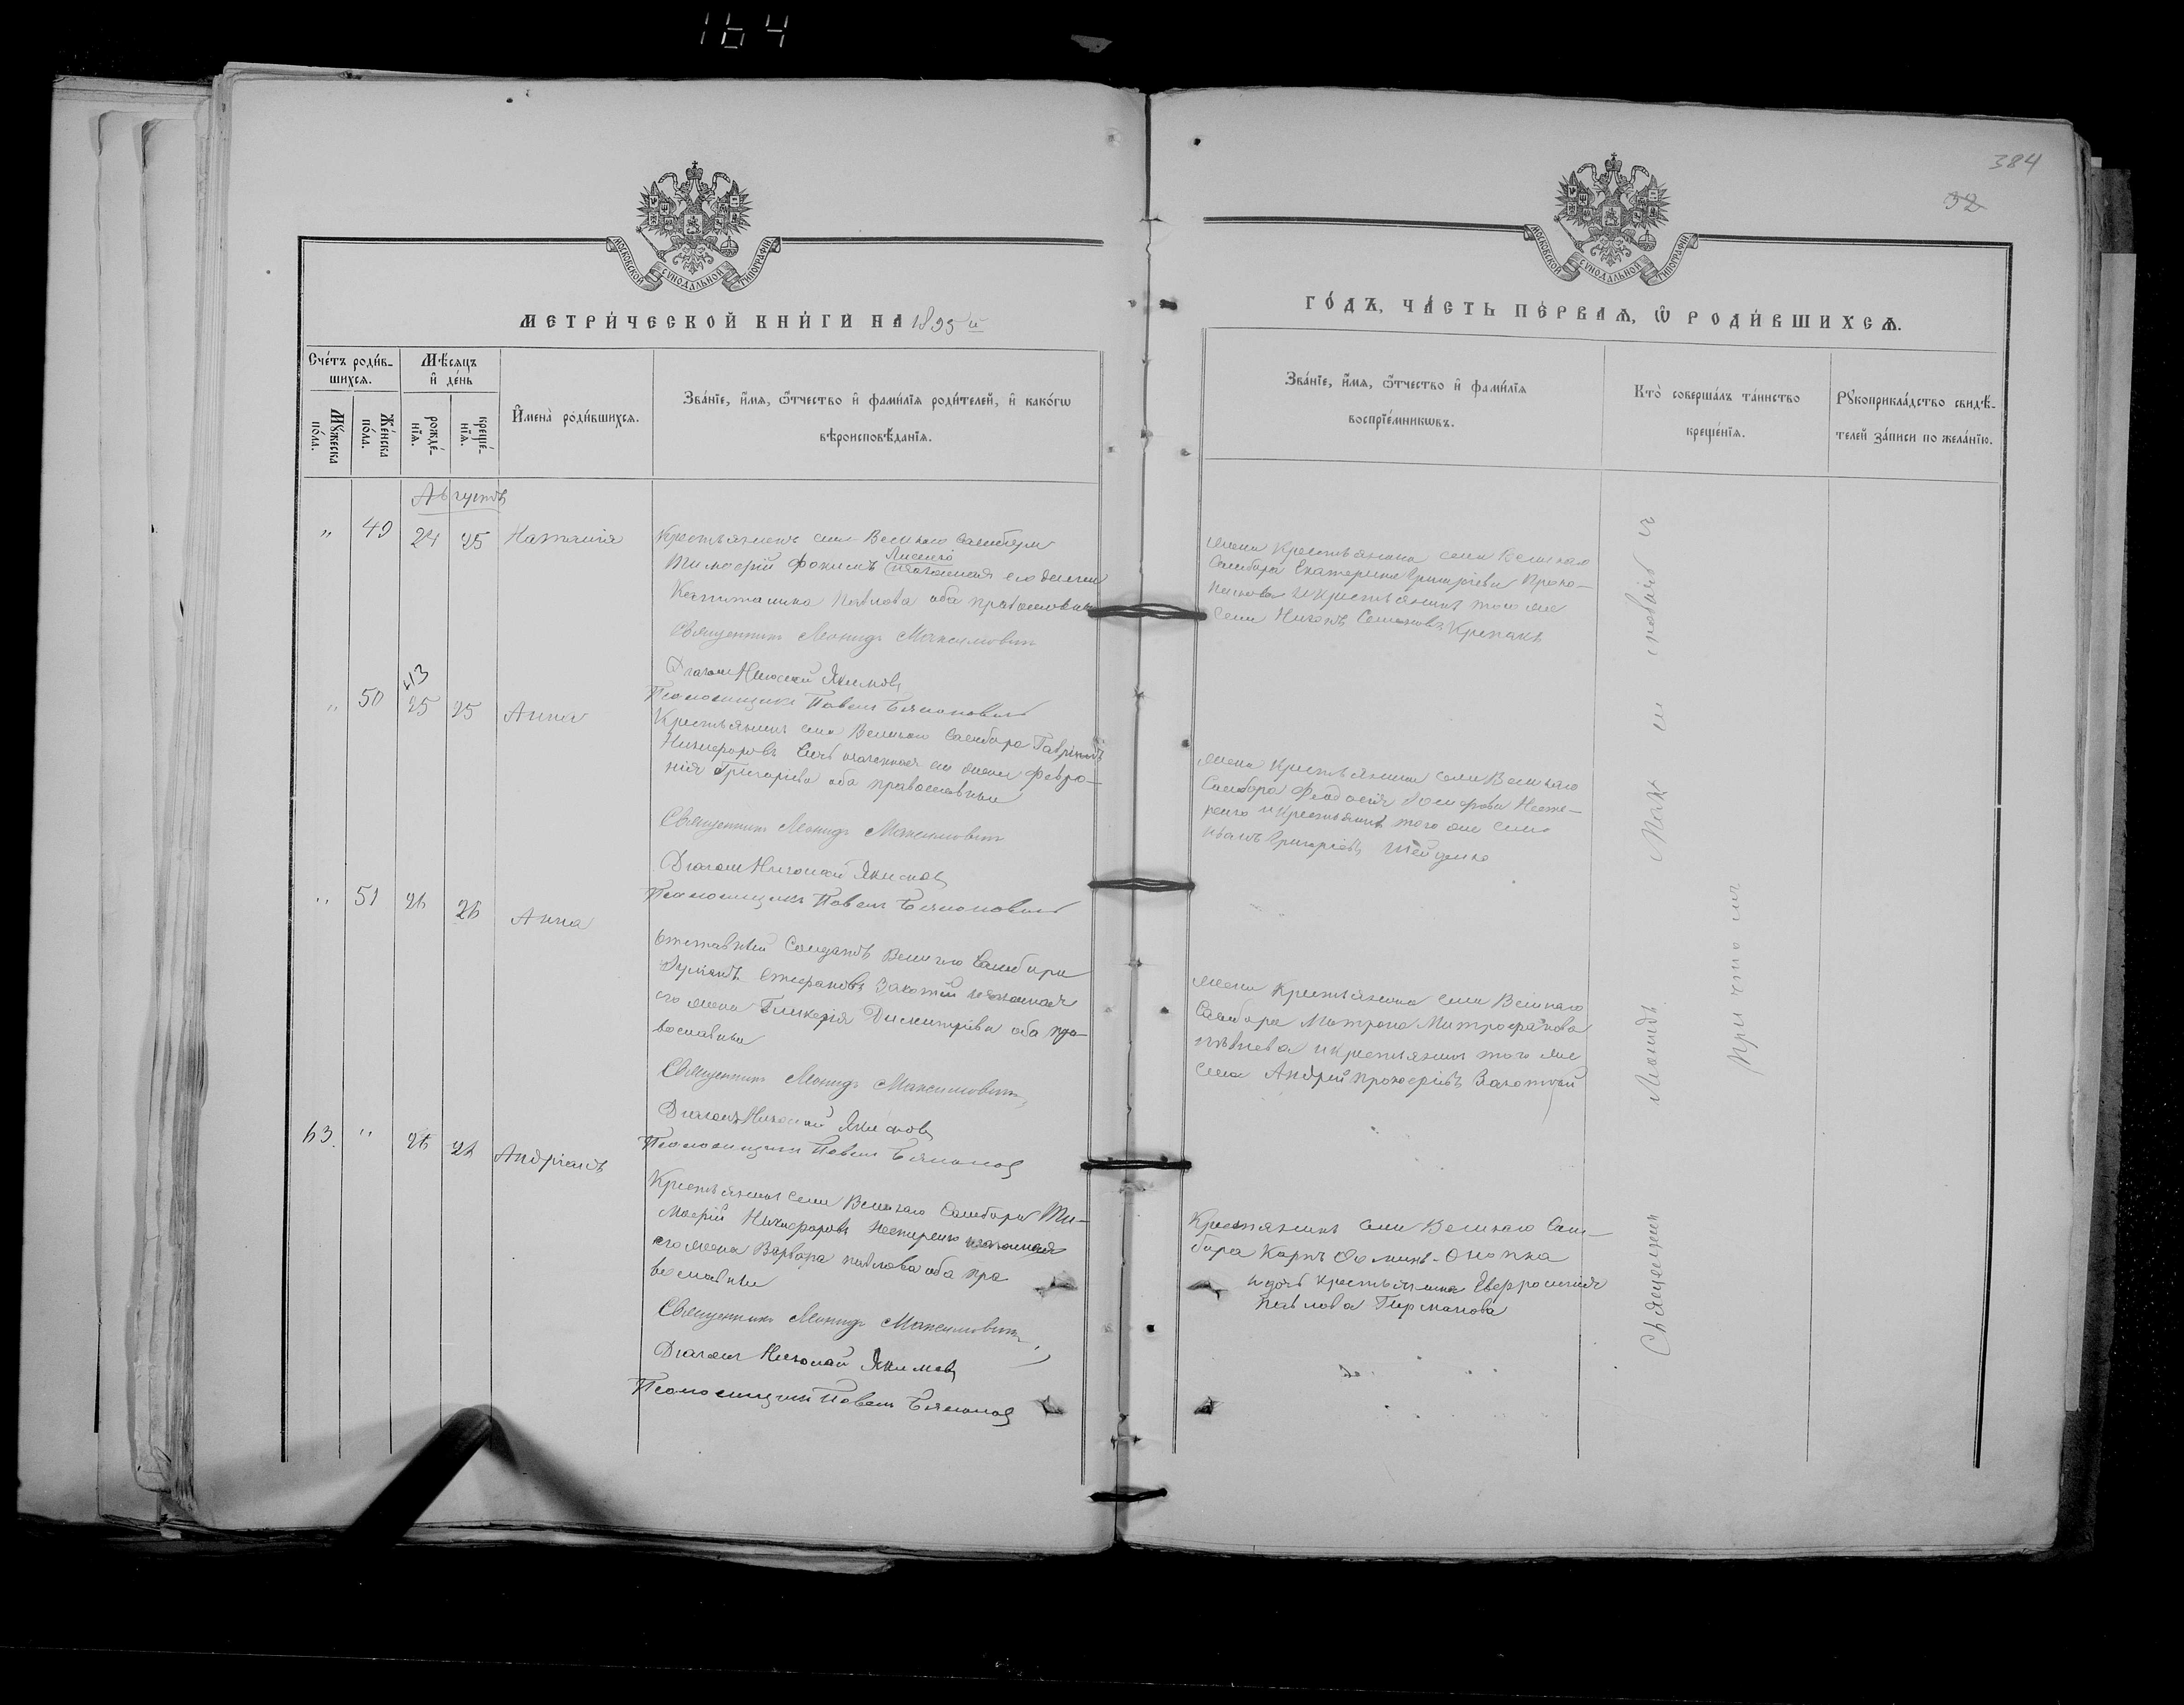 164
384
32
МОСКОВСКОЙ СѴНОДАЛЬНОЙ ТИПОГРАФІИ
МОСКОВСКОЙ СѴНОДАЛЬНОЙ ТИПОГРАФІИ
МЕТРИ́ЧЕСКОЙ КНИ́ГИ НА 1895 й
ГО́ДЪ, ЧА́СТЬ ПЕ́РВАѦ, Ѡ҆ РОДИ́ВШИХСѦ.
Сче́тъ роди́в-
шихсѧ.
Мѣ́сѧцъ
и҆ де́нь
Мꙋ́жеска
по́ла.
Же́нска
по́ла.
рожде́-
нїѧ.
креще́-
нїѧ.
И҆мена̀ роди́вшихсѧ.
Зва́нїе, и҆́мѧ, ѻ҆́тчество и҆ фами́лїѧ роди́телей, и҆ како́гѡ
вѣроисповѣ́данїѧ.
Зва́нїе, и҆́мѧ, ѻ҆́тчество и҆ фами́лїѧ
воспрїе́мникѡвъ.
Кто̀ соверша́лъ та́инство
креще́нїѧ.
Рꙋкоприкла́дство свидѣ́-
телей за́писи по жела́нїю.
Августъ
„ 49 24 25 Наталія
Крестьянинъ села Великаго Самбура
Тимофей Фокинъ Лисенко законная его жена
Капитолина Павлова оба православные
Священникъ Леонидъ Максимовичъ
Діаконъ Николай Якимовъ
Псаломщикъ Павелъ
жена крестьянина села Великаго
Самбура Екатерина Григоріева Проко-
и крестьянинъ того же
села Семеновъ
413
„ 50 25 25 Анна
Крестьянинъ села Великаго Самбура Гавріилъ
Никифоровъ законная его жена Февро-
нія Григоріева оба православные
Священникъ Леонидъ Максимовичъ
Діаконъ Николай Якимовъ
Псаломщикъ Павелъ
жена крестьянина села Великаго
Самбура Феодосія Іосифова Несте-
ренко и крестьянинъ того же села
Иванъ Григоріевъ
„ 51 26 26 Анна
Отставный Солдатъ Великаго Самбура
Стефановъ Закотій законная
его жена Гликерія Димитріева оба пра-
вославные
Священникъ Леонидъ Максимовичъ
Діаконъ Николай Якимовъ
Псаломщикъ Павелъ
жена крестьянина села Великаго
Самбура Матрона Митрофанова
и крестьянинъ того же
села Андрей Прокофіевъ Закотній
63. „ 26 26 Андріанъ
Крестьянинъ села Великаго Самбура Ти-
мофей Никифоровъ Нестеренко законная
его жена Варвара Павлова оба пра
вославные
Священникъ Леонидъ Максимовичъ
Діаконъ Николай Якимовъ
Псаломщикъ Павелъ
Крестьянинъ села Великаго Сам-
бура Карпъ Фоминъ Онопка
и дочь крестьянина Евфросинія
Павлова
Священникъ Леонидъ Мак
причтомъ